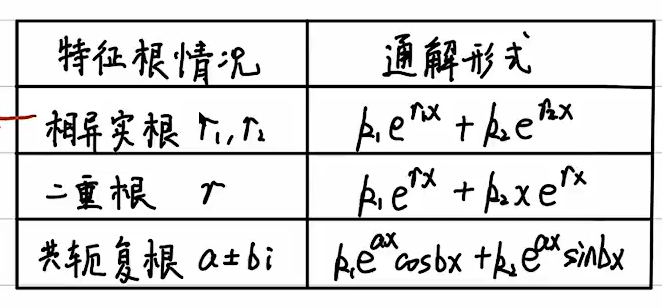 特征根情况 通解形式
相异实根 r₁,r₂ k₁e^{r₁x} + k₂e^{r₂x}
二重根 r k₁e^{rx} + k₂xe^{rx}
共轭复根 a±bi k₁e^{ax}cosbx + k₂e^{ax}sinbx